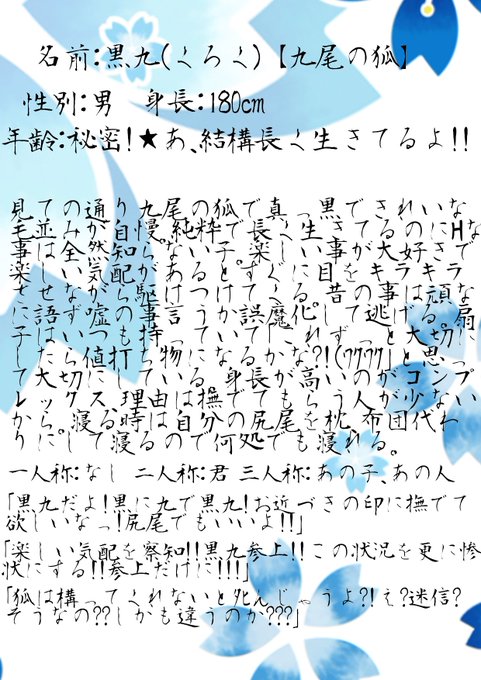 名前:黒九(くろく)【九尾の狐】
性別:男 身長:180cm
年齢:秘密!★あ、結構長く生きてるよ!!
見ての通り九尾の狐で真っ黒できれいな
毛並みが自慢。純粋で長く生きてるのにHな
事は全然知らない子。楽しい事が大好きで
楽しい気配があるとすぐに目をキラキラ
させながら駆けつけてくる。昔の事は頑な
に語らず嘘の事言うか誤魔化して逃げる。扇
子はいつも持っていて「これずっと大切に
したら値打ち物になるかな?!(ワクワク)」と思っ
て大切にしている。身長が高いのがコンプ
レックス、理由は撫でてもらう人が少ない
から。寝る時は自分の尻尾を枕、布団代わ
りにして寝るので何処でも寝れる。
一人称:なし 二人称:君 三人称:あの子、あの人
「黒九だよ!黒に九で黒九!お近づきの印に撫でて
欲しいなっ!尻尾でもいいよ!!」
「楽しい気配を察知!!黒九参上!!この状況を更に惨
状にする!!参上だけに!!!」
「狐は構ってくれないと死んじゃうよ?!え?迷信?
そうなの??しかも違うのか???」